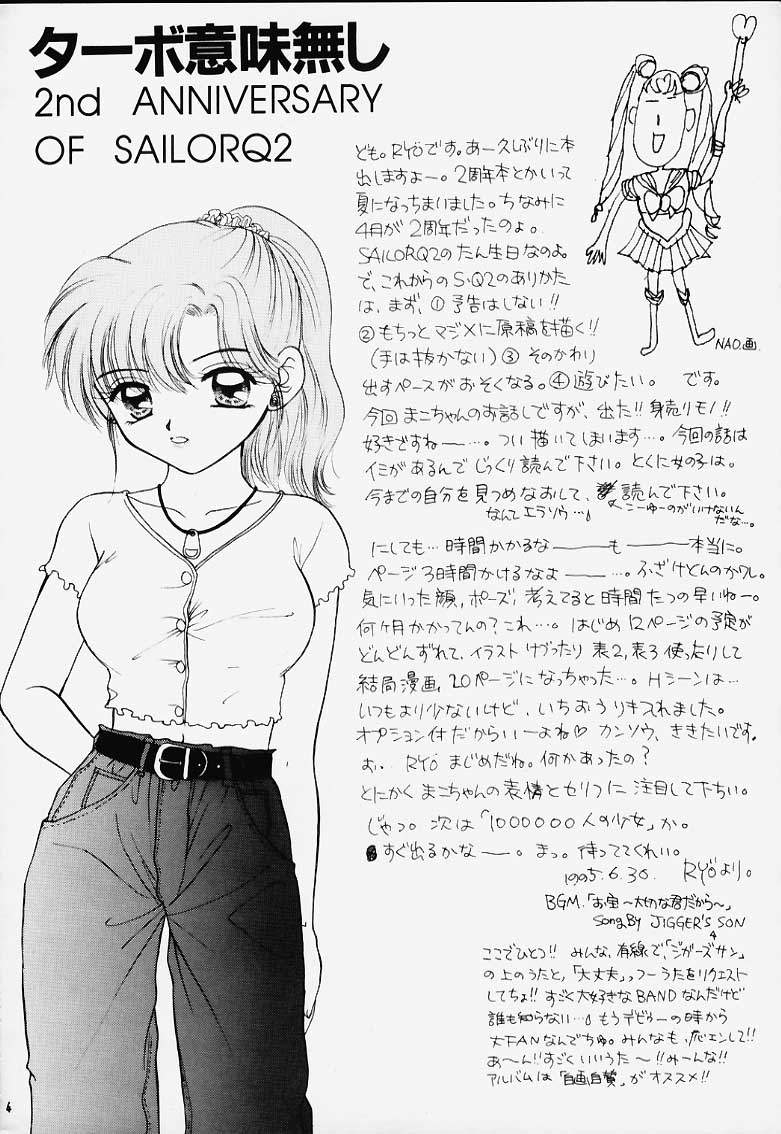 ターボ意味無し
2nd ANNIVERSARY
OF SAILORQ2
ども。RYÖです。あー久しぶりに本
出しますよー。2周年本とかいって
夏になっちまいました。ちなみに
4月が2周年だったのよ。
SAILORQ2のたん生日なのよ。
で、これからのS・Q2のありかた
は、まず、①予告はしない!!
②もちっとマジメに原稿を描く!!
(手は抜かない)③そのかわり
出すペースがおそくなる。④遊びたい。 です。
今回まこちゃんのお話しですが、出た!!身売りモノ!!
好きですねー…。つい描いてしまいます…。今回の話は
イミがあるんでじっくり読んで下さい。とくに女の子は。
今までの自分を見つめなおして、読んで下さい。
なんてエラソウ…♪
こーゆーのがいけないん
だな…。
にしても…時間かかるなーもー本当に。
ページ3時間かけるなよー…。ふざけとんのかワレ。
気にいった顔、ポーズ、考えてると時間たつの早いねー。
何ヶ月かかってんの?これ…。はじめ12ページの予定が
どんどんずれて、イラストけづったり表2,表3使ったりして
結局漫画、20ページになっちゃった…。Hシーンは…
いつもより少ないけど、いちおうりきいれました。
オプション付だからいーよね♡カンソウ、ききたいです。
お、RYÖまじめだね。何かあったの?
とにかくまこちゃんの表情とセリフに注目して下ちい。
じゃっ。次は「1000000人の少女」か。
すぐ出るかなー。まっ。待っててくれい。
1995.6.30. RYÖより。
BGM.「お宝〜大切な君だから〜」
Song By JIGGER'S SON
ここでひとつ!!みんな、有線で、「ジガーズサン」
の上のうたと、「大丈夫」っつーうたをリクエスト
してちょ!!すごく大好きなBANDなんだけど
誰も知らない…♪もうデビューの時から
大FANなんでちゅ。みんなも、応エンして!!
あ〜ん!!すごくいいうた〜!!みーんな!!
アルバムは「自画自賛」がオススメ!!
NAO.画.
4